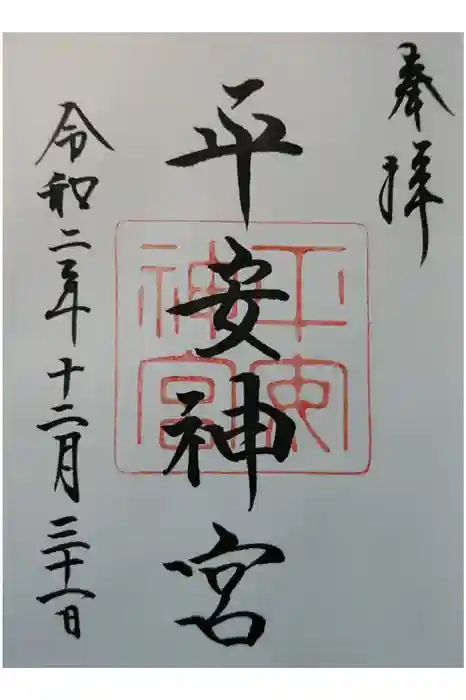 奉拝
平安神宮
平安神宮
令和二年十二月三十一日